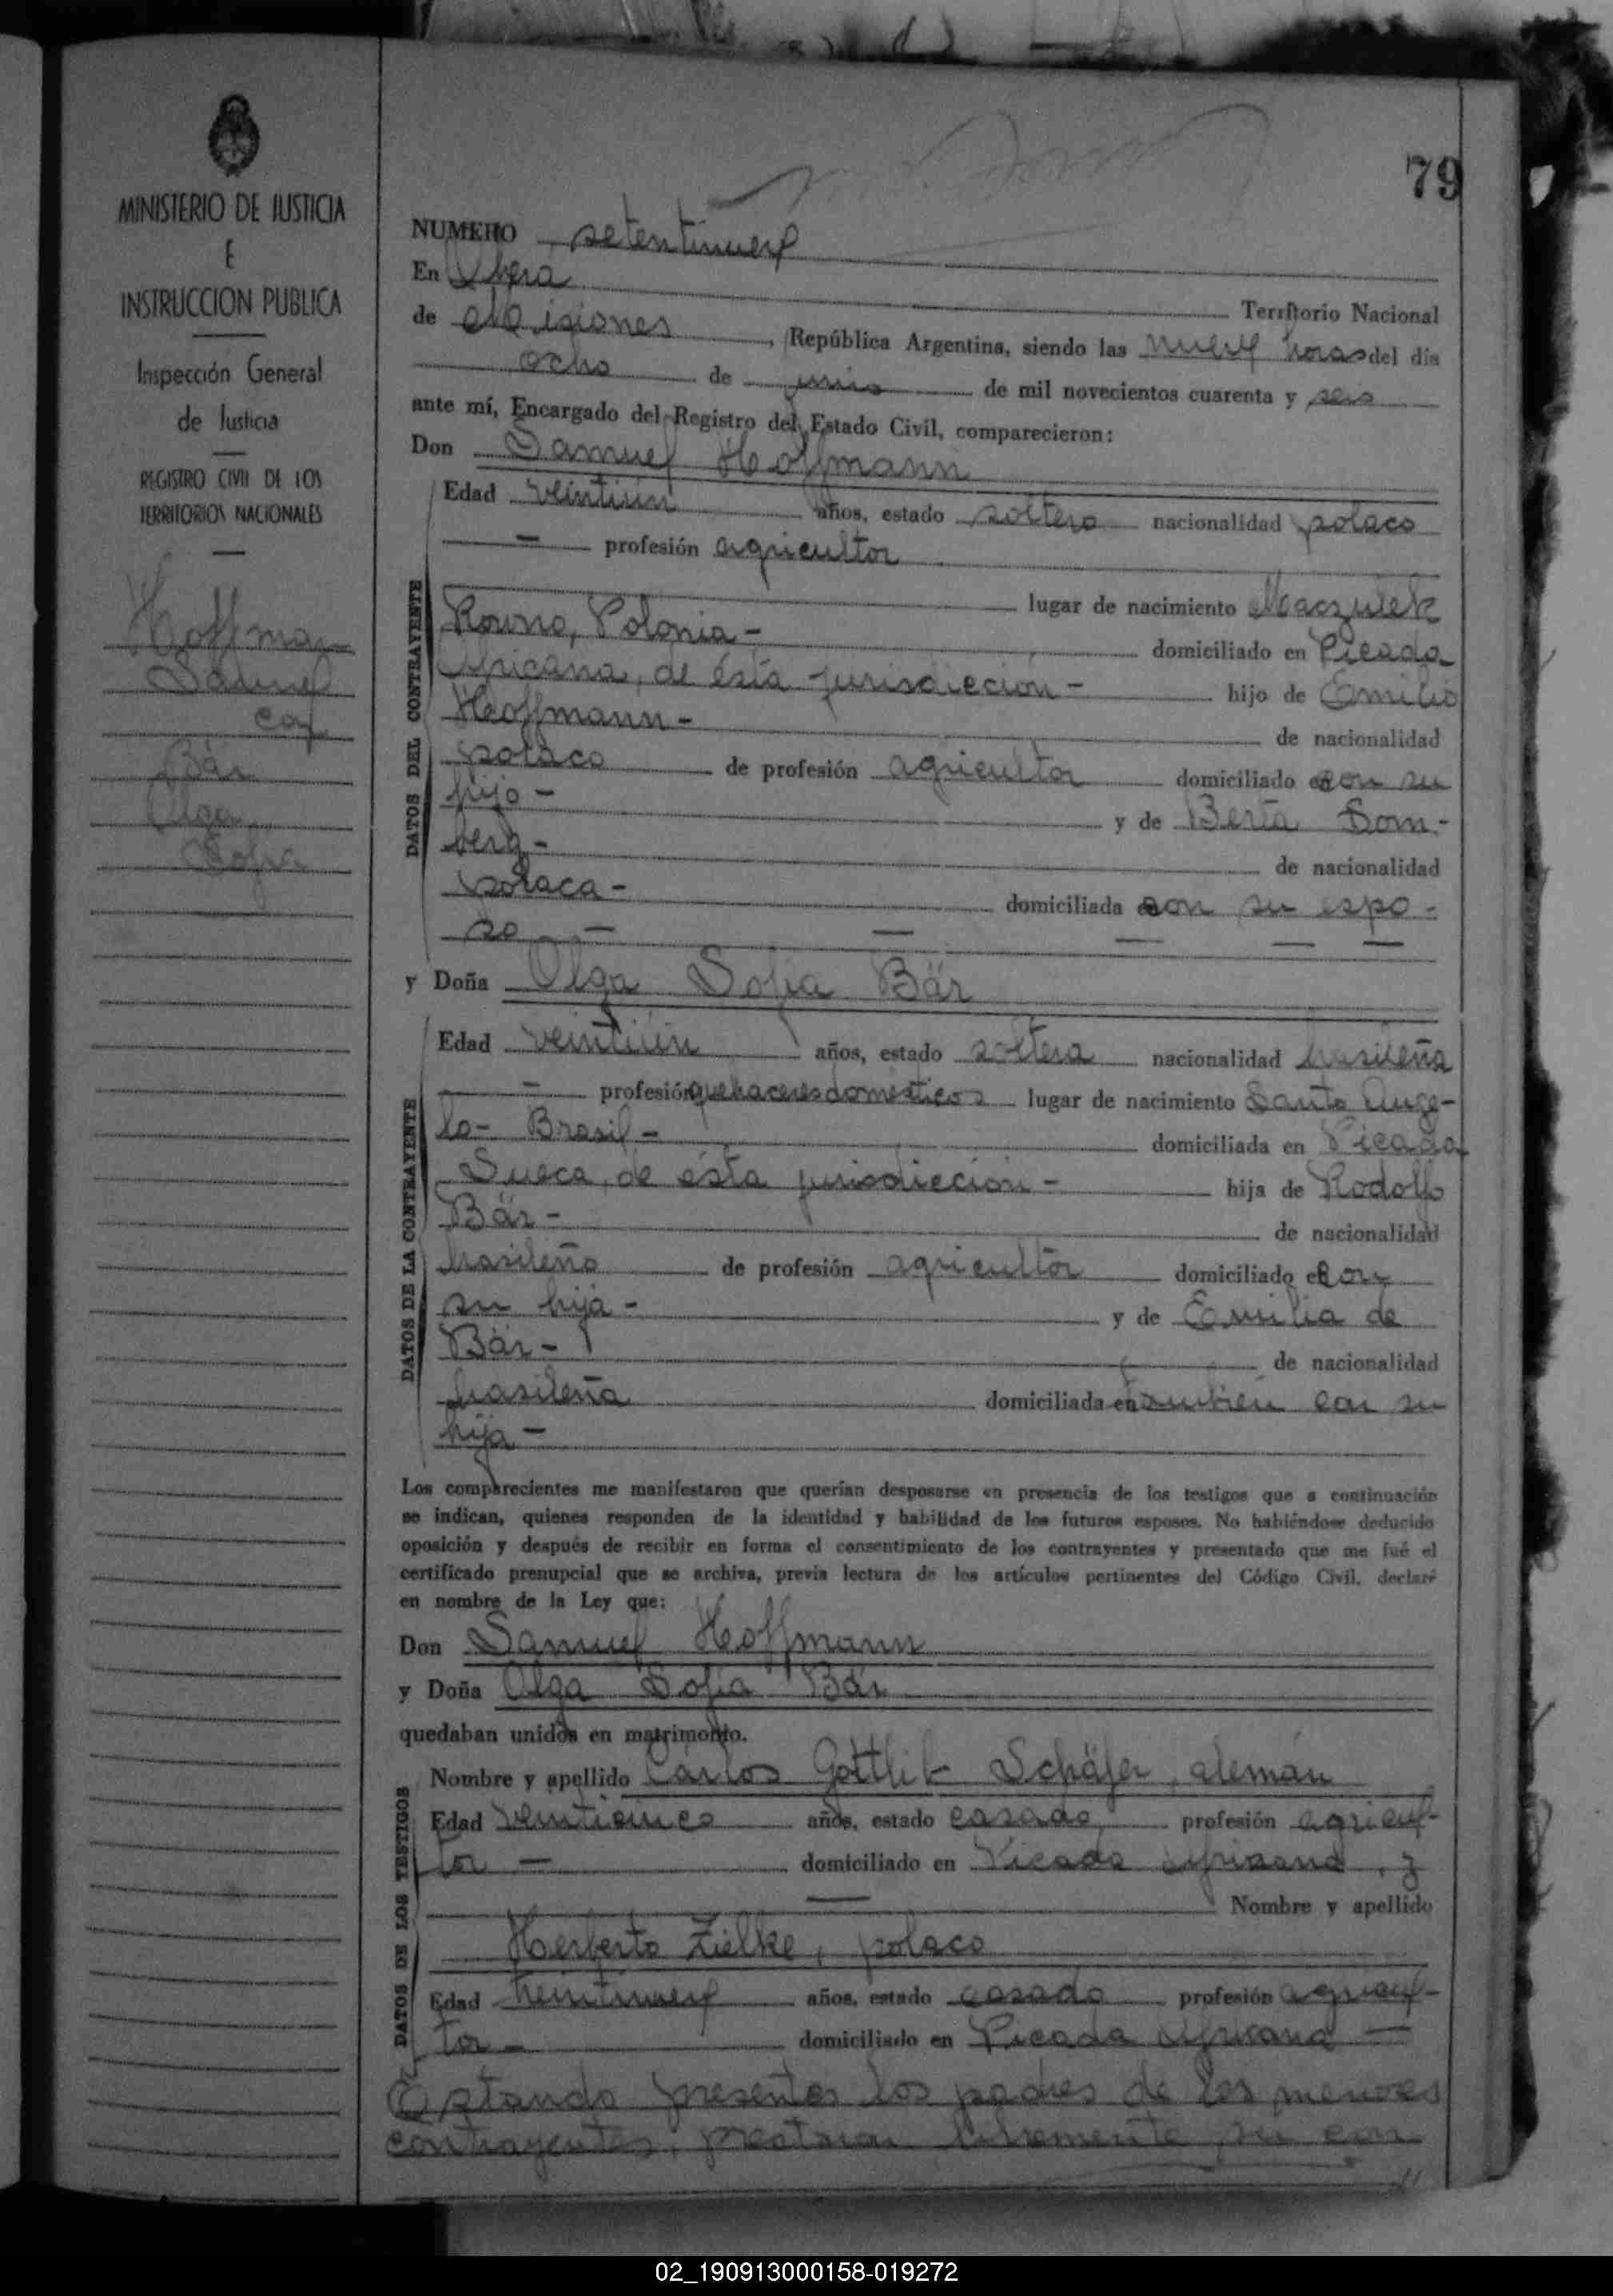 79
MINISTERIO DE JUSTICIA
E
INSTRUCCION PUBLICA
Inspección General
de Justicia
REGISTRO CIVIL DE LOS
TERRITORIOS NACIONALES
Hoffman
Samuel
con
Bär
Olga
Sofia
NUMERO setentinueve
En Oberá Territorio Nacional
de Misiones, República Argentina, siendo las nueve horas del día
ocho de junio de mil novecientos cuarenta y seis
ante mí, Encargado del Registro del Estado Civil, comparecieron:
Don Samuel Hoffmann
DATOS DEL CONTRAYENTE
Edad veintiún años, estado soltero nacionalidad polaco
— profesión agricultor
lugar de nacimiento Maczulek
Rowno, Polonia -
domiciliado en Picada
Africana, de ésta jurisdiección - hijo de Emilio
Hoffmann - de nacionalidad
polaco de profesión agricultor domiciliado con su
hijo - y de Berta Som-
berg - de nacionalidad
polaca - domiciliada con su espo-
so — — — — —
y Doña Olga Sofia Bär
DATOS DE LA CONTRAYENTE
Edad veintiún años, estado soltera nacionalidad brasileña
— profesión quehaceres domésticos lugar de nacimiento Santo Ange-
lo - Brasil - domiciliada en Picada
Sueca, de ésta jurisdiección - hija de Rodolfo
Bär - de nacionalidad
brasileño de profesión agricultor domiciliado con
su hija - y de Emilia de
Bär - de nacionalidad
brasileña domiciliada en también con su
hija -
Los comparecientes me manifestaron que querían desposarse en presencia de los testigos que a continuación
se indican, quienes responden de la identidad y habilidad de los futuros esposos. No habiéndose deducido
oposición y después de recibir en forma el consentimiento de los contrayentes y presentado que me fué el
certificado prenupcial que se archiva, previa lectura de los artículos pertinentes del Código Civil, declaré
en nombre de la Ley que:
Don Samuel Hoffmann
y Doña Olga Sofia Bär
quedaban unidos en matrimonio.
DATOS DE LOS TESTIGOS
Nombre y apellido Carlos Gottlib Schäfer, alemán
Edad veinticinco años, estado casado profesión agricul-
tor — domiciliado en Picada Africana, y
— Nombre y apellido
Herberto Zielke, polaco
Edad veintinueve años, estado casado profesión agricul-
tor - domiciliado en Picada Africana —
Estando presentes los padres de los menores
contrayentes, prestaron libremente su con
//
02_190913000158-019272